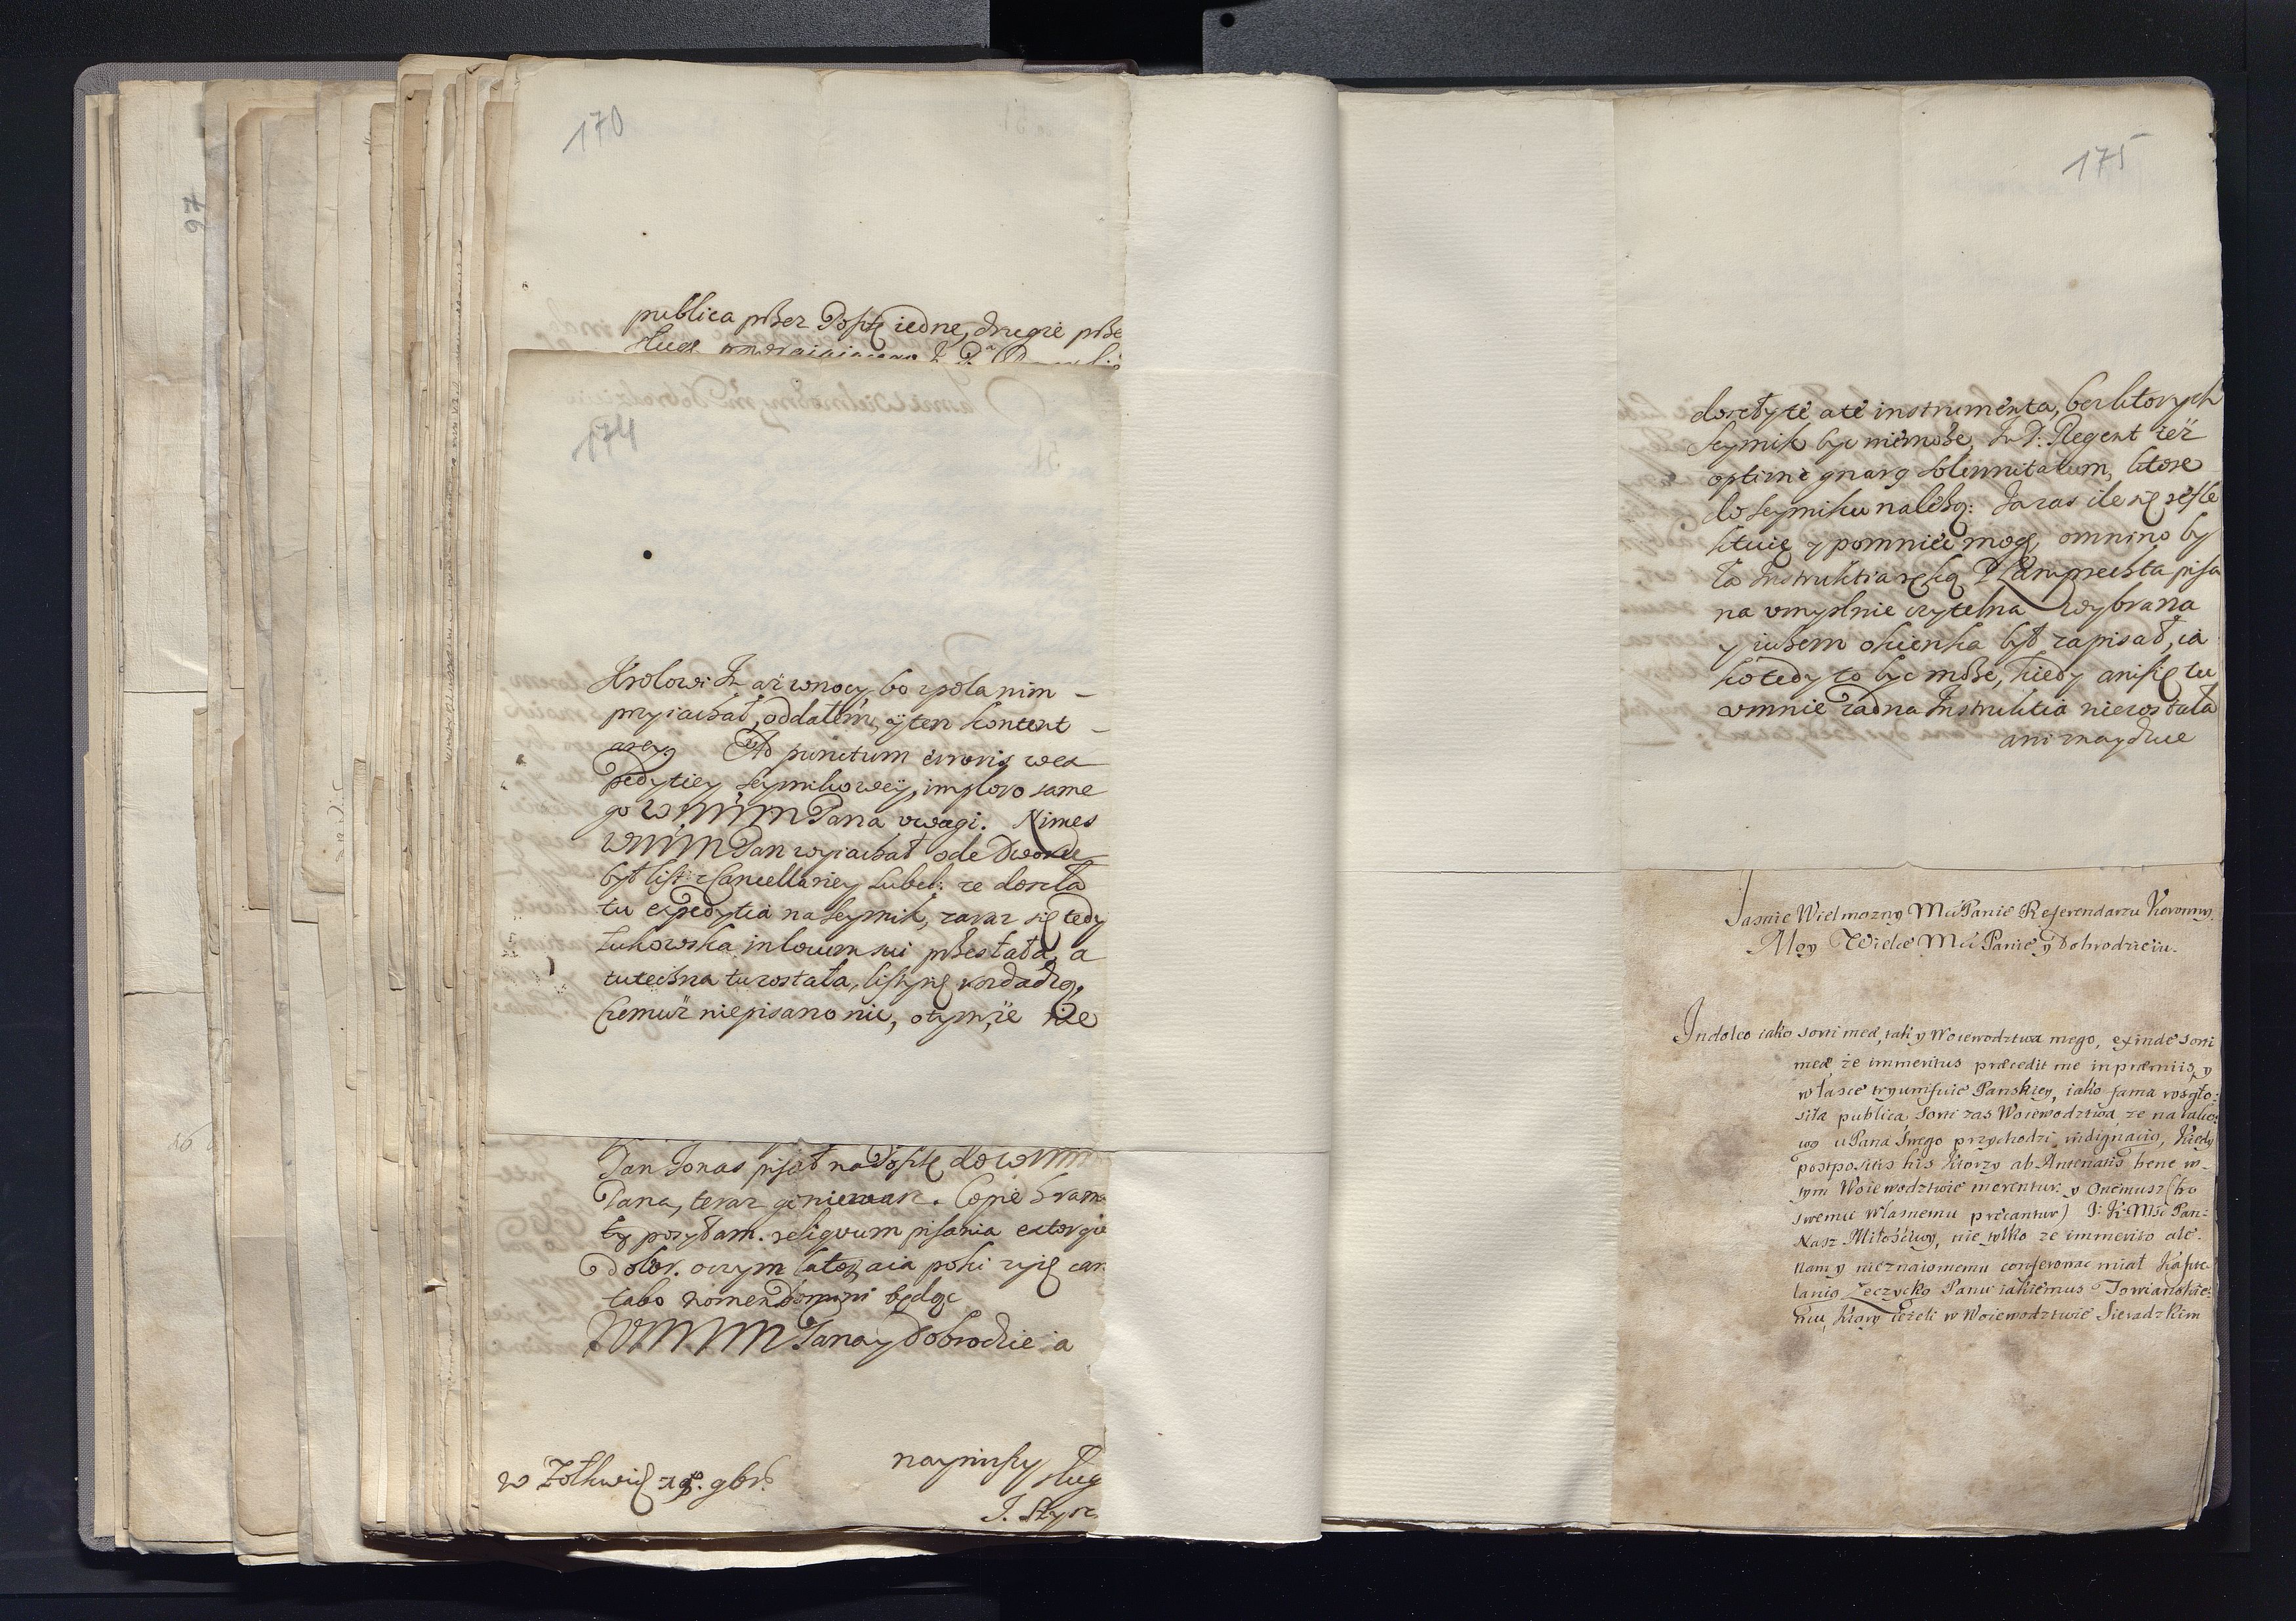 170
publica przez Posztę iedne, drugie prze
174
Krolowi Jm aż wnocy, bo zpola nim –
przyiachał, oddałem, y ten kontent –
Ad punctum erroris wex
pedytiey seymikowey, imploro same
go WMMM Pana uwagi. Nimes
WMMM Pan wyiachał ode Dworu
był list z Cancellariey Lubel: ze doszła
tu expedytia na seymik, zaraz się tedy
Łukowska in locum sui przesłała, a
tuteiszna tu została, listy się
Czemuż niepisano nic, otym, że nie
Pan Jonas pisał na Posztę do WMM
Pana, teraz go niemasz. Copie
ty posyłam. reliquum pisania extorque
Dolor. oczym a ia poki żyię can
tabo nomen Domini będąc
WMMM Pana y Dobrodzieia
nayniższy
sług
w Żołkwi 9br.
J. Szyszk
175
doszłyte ate instrumenta, bez ktorych
Seymik byc niemoże, Jm P. Regent też
optime gnarus solennitatum, ktore
do seymiku należą: Ja zas ile się refle
ktuię y pomnieć mogę, omnino by
ła Instruktia ręką P Lamprechta pisa
na umyslnie czytelna wybrana
y iużem okienka był zapisał, ia
ko tedy to byc może, kiedy anisię tu
umnie żadna Instruktia niezostała
ani znayduie
Jasnie Wielmozny Mći Panie Referendarzu Koronny.
Moy Wielce Mći Panie y Dobrodzieiu.
Indoleo iako sorti meæ, tak y Woiewodztwa mego, exinde sorti
meæ, że immeritus præcedit me in præmiis, y
w łasce tryumfuie Panskiey, iako fama rozgło:
siła publica, sorti zas Woiewodztwa, ze na tako:
wą u Pana swego przychodzi indignatią, kiedy
postpositis his ktorzy ab Antenatis bene w –
tym Woiewodztwie merentur, y Onemusz (bo
swemu własnemu præcantur) J: K: Mść Pan:
Nasz Miłościwy, nie tylko ze immerito ale –
nam y nieznaiomemu conferowac miał Kaszte
lanią Łęczycką Panu iakiemus Towianskie:
mu, ktory ieżeli w Woiewodztwie Sieradzkim